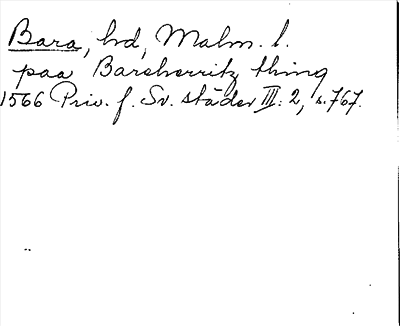 Bara, hd, Malm. l.
paa Bareherritz thing
1566 Priv. f. Sv. städer III: 2, s. 767.